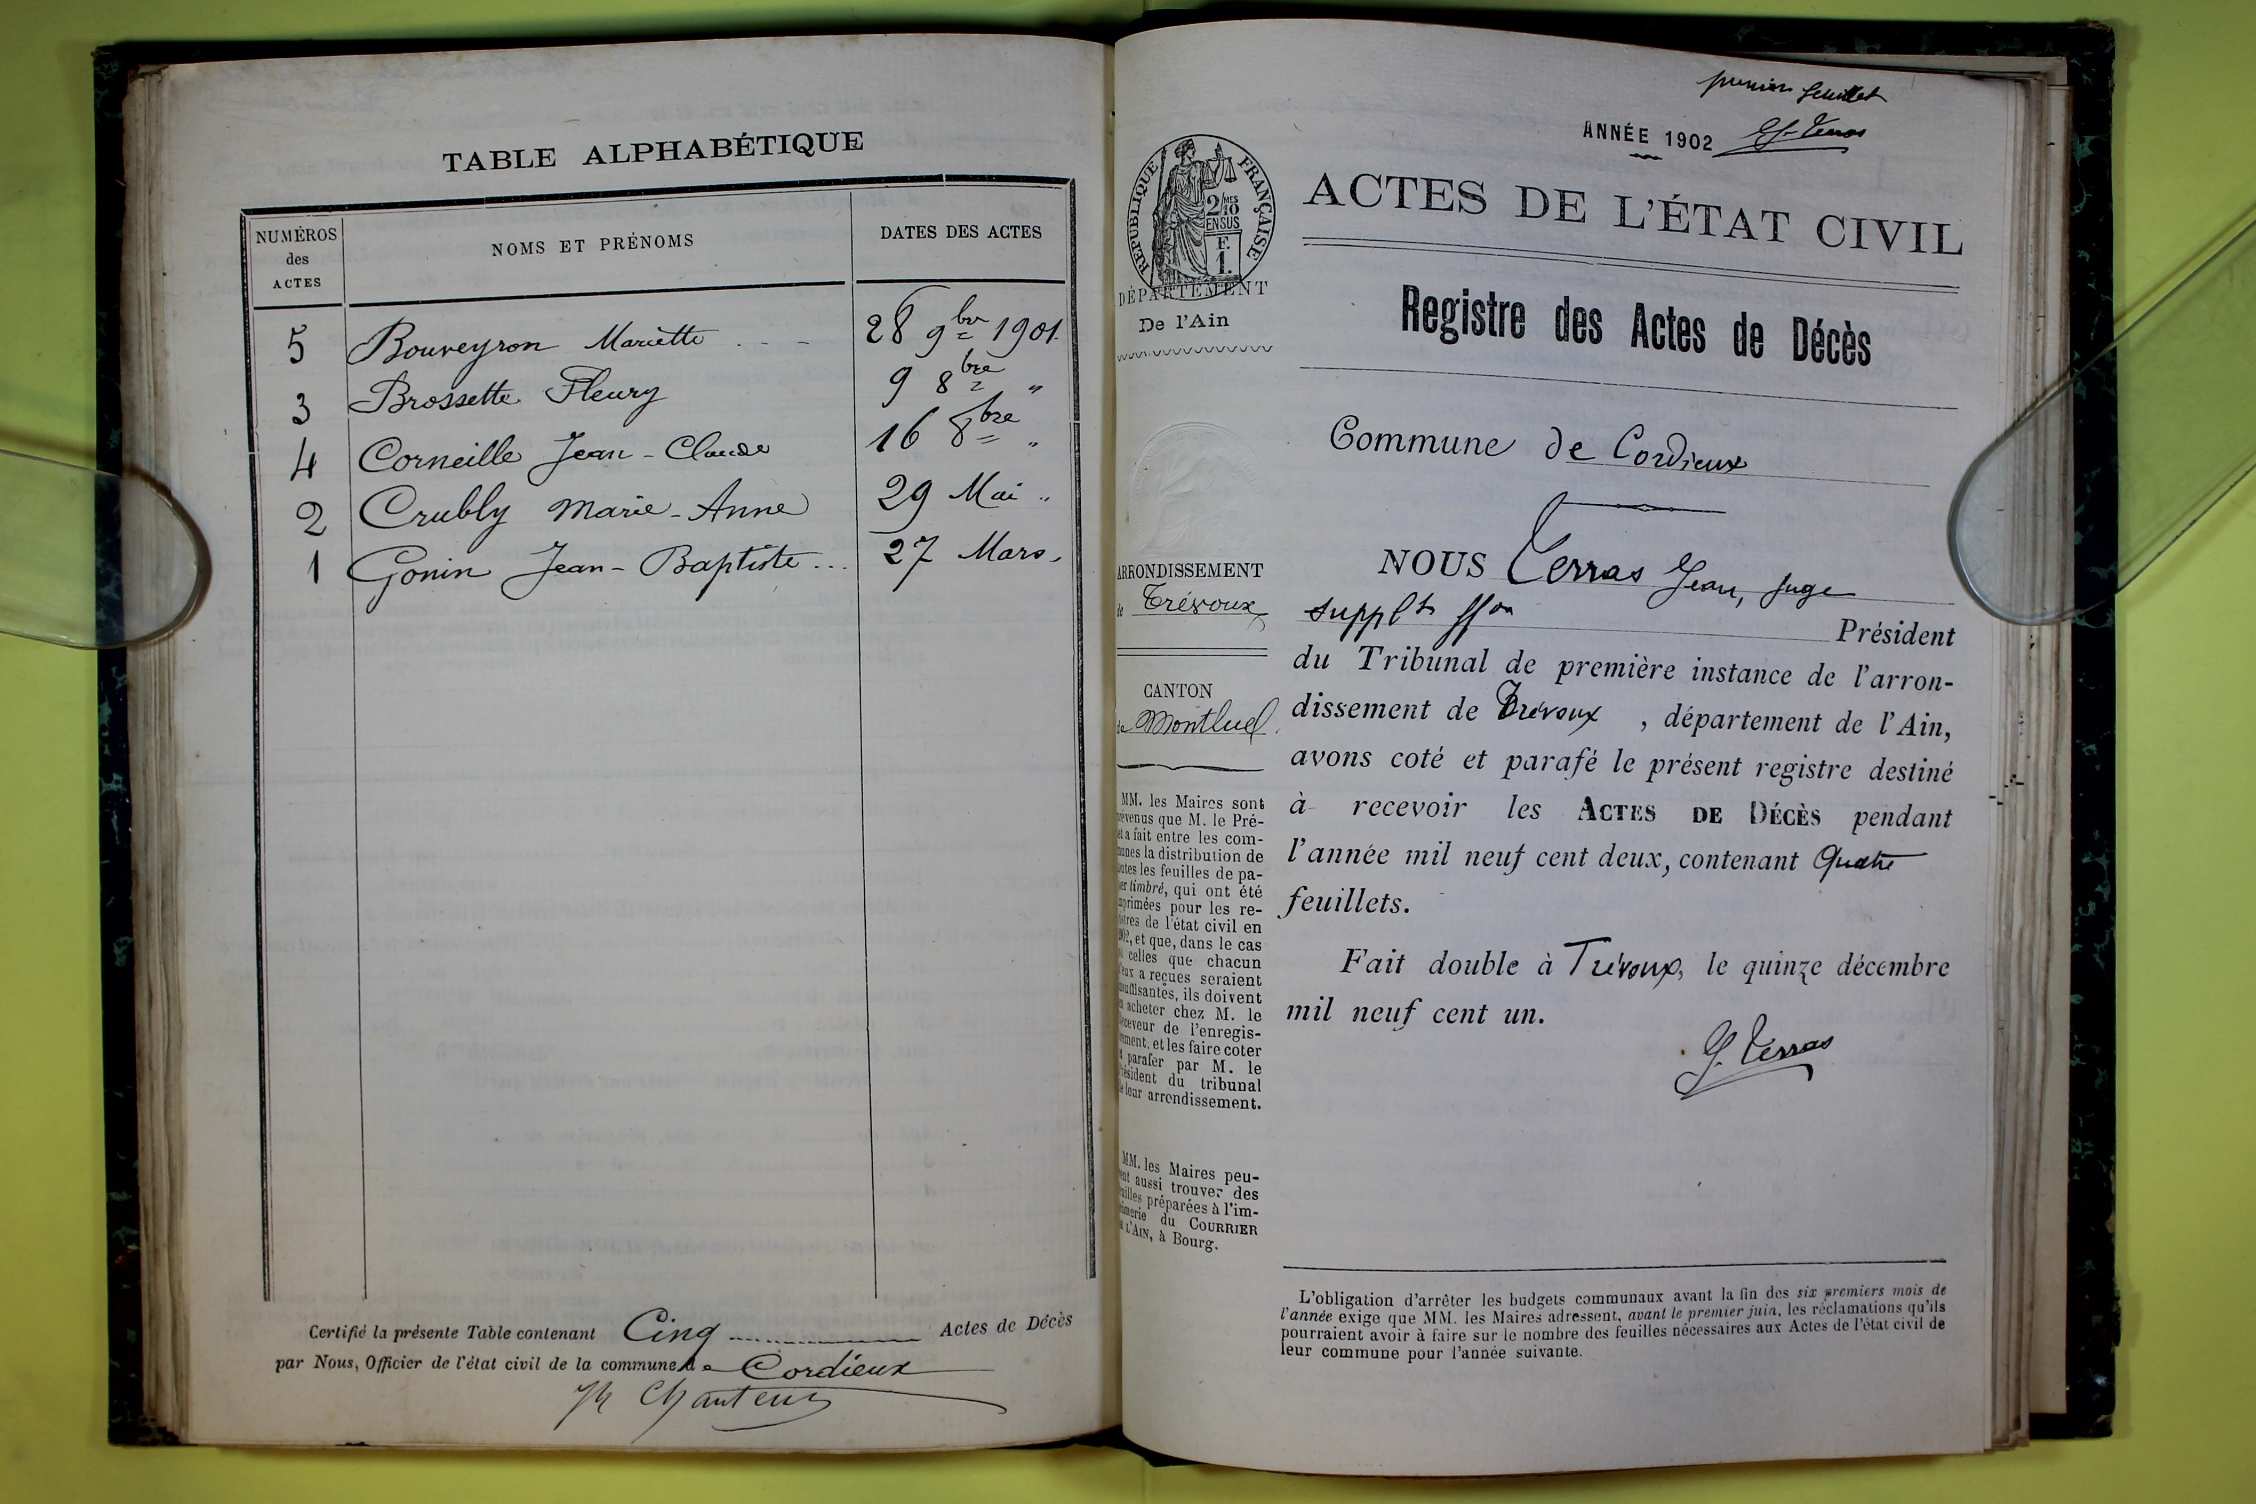 TABLE ALPHABÉTIQUE
NUMÉROS
des
ACTES
NOMS ET PRÉNOMS
DATES DES ACTES
5 Bouveyron Mariette 28 9bre 1901.
3 Brossette Fleury 9 8bre "
4 Corneille Jean-Claude 16 8bre "
2 Crubly Marie-Anne 29 Mai "
1 Gonin Jean-Baptiste ... 27 Mars
Certifié la présente Table contenant Cinq Actes de Décès
par Nous, Officier de l'état civil de la commune de Cordieux
premier feuillet
ANNÉE 1902
RÉPUBLIQUE FRANÇAISE
2/10 MES
EN SUS
F.
1.
ACTES DE L'ÉTAT CIVIL
DÉPARTEMENT
De l'Ain
Registre des Actes de Décès
Commune de Cordieux
ARRONDISSEMENT
de Trévoux
CANTON
de Montluel
NOUS Terras Jean, Juge
supplt ffon Président
du Tribunal de première instance de l'arron-
dissement de Trévoux, département de l'Ain,
avons coté et parafé le présent registre destiné
à recevoir les ACTES DE DÉCÈS pendant
l'année mil neuf cent deux, contenant Quatre
feuillets.
Fait double à Trévoux, le quinze décembre
mil neuf cent un.
J. Terras
MM. les Maires sont
prévenus que M. le Pré-
et a fait entre les com-
munes la distribution de
toutes les feuilles de pa-
ier timbré, qui ont été
mprimées pour les re-
istres de l'état civil en
902, et que, dans le cas
ù celles que chacun
'eux a reçues seraient
nsuffisantes, ils doivent
n acheter chez M. le
Receveur de l'enregis-
rement, et les faire coter
t parafer par M. le
Président du tribunal
e leur arrondissement.
MM. les Maires peu-
ent aussi trouver des
euilles préparées à l'im-
rimerie du COURRIER
E L'AIN, à Bourg.
L'obligation d'arrêter les budgets communaux avant la fin des six premiers mois de
l'année exige que MM. les Maires adressent, avant le premier juin, les réclamations qu'ils
pourraient avoir à faire sur le nombre des feuilles nécessaires aux Actes de l'état civil de
leur commune pour l'année suivante.